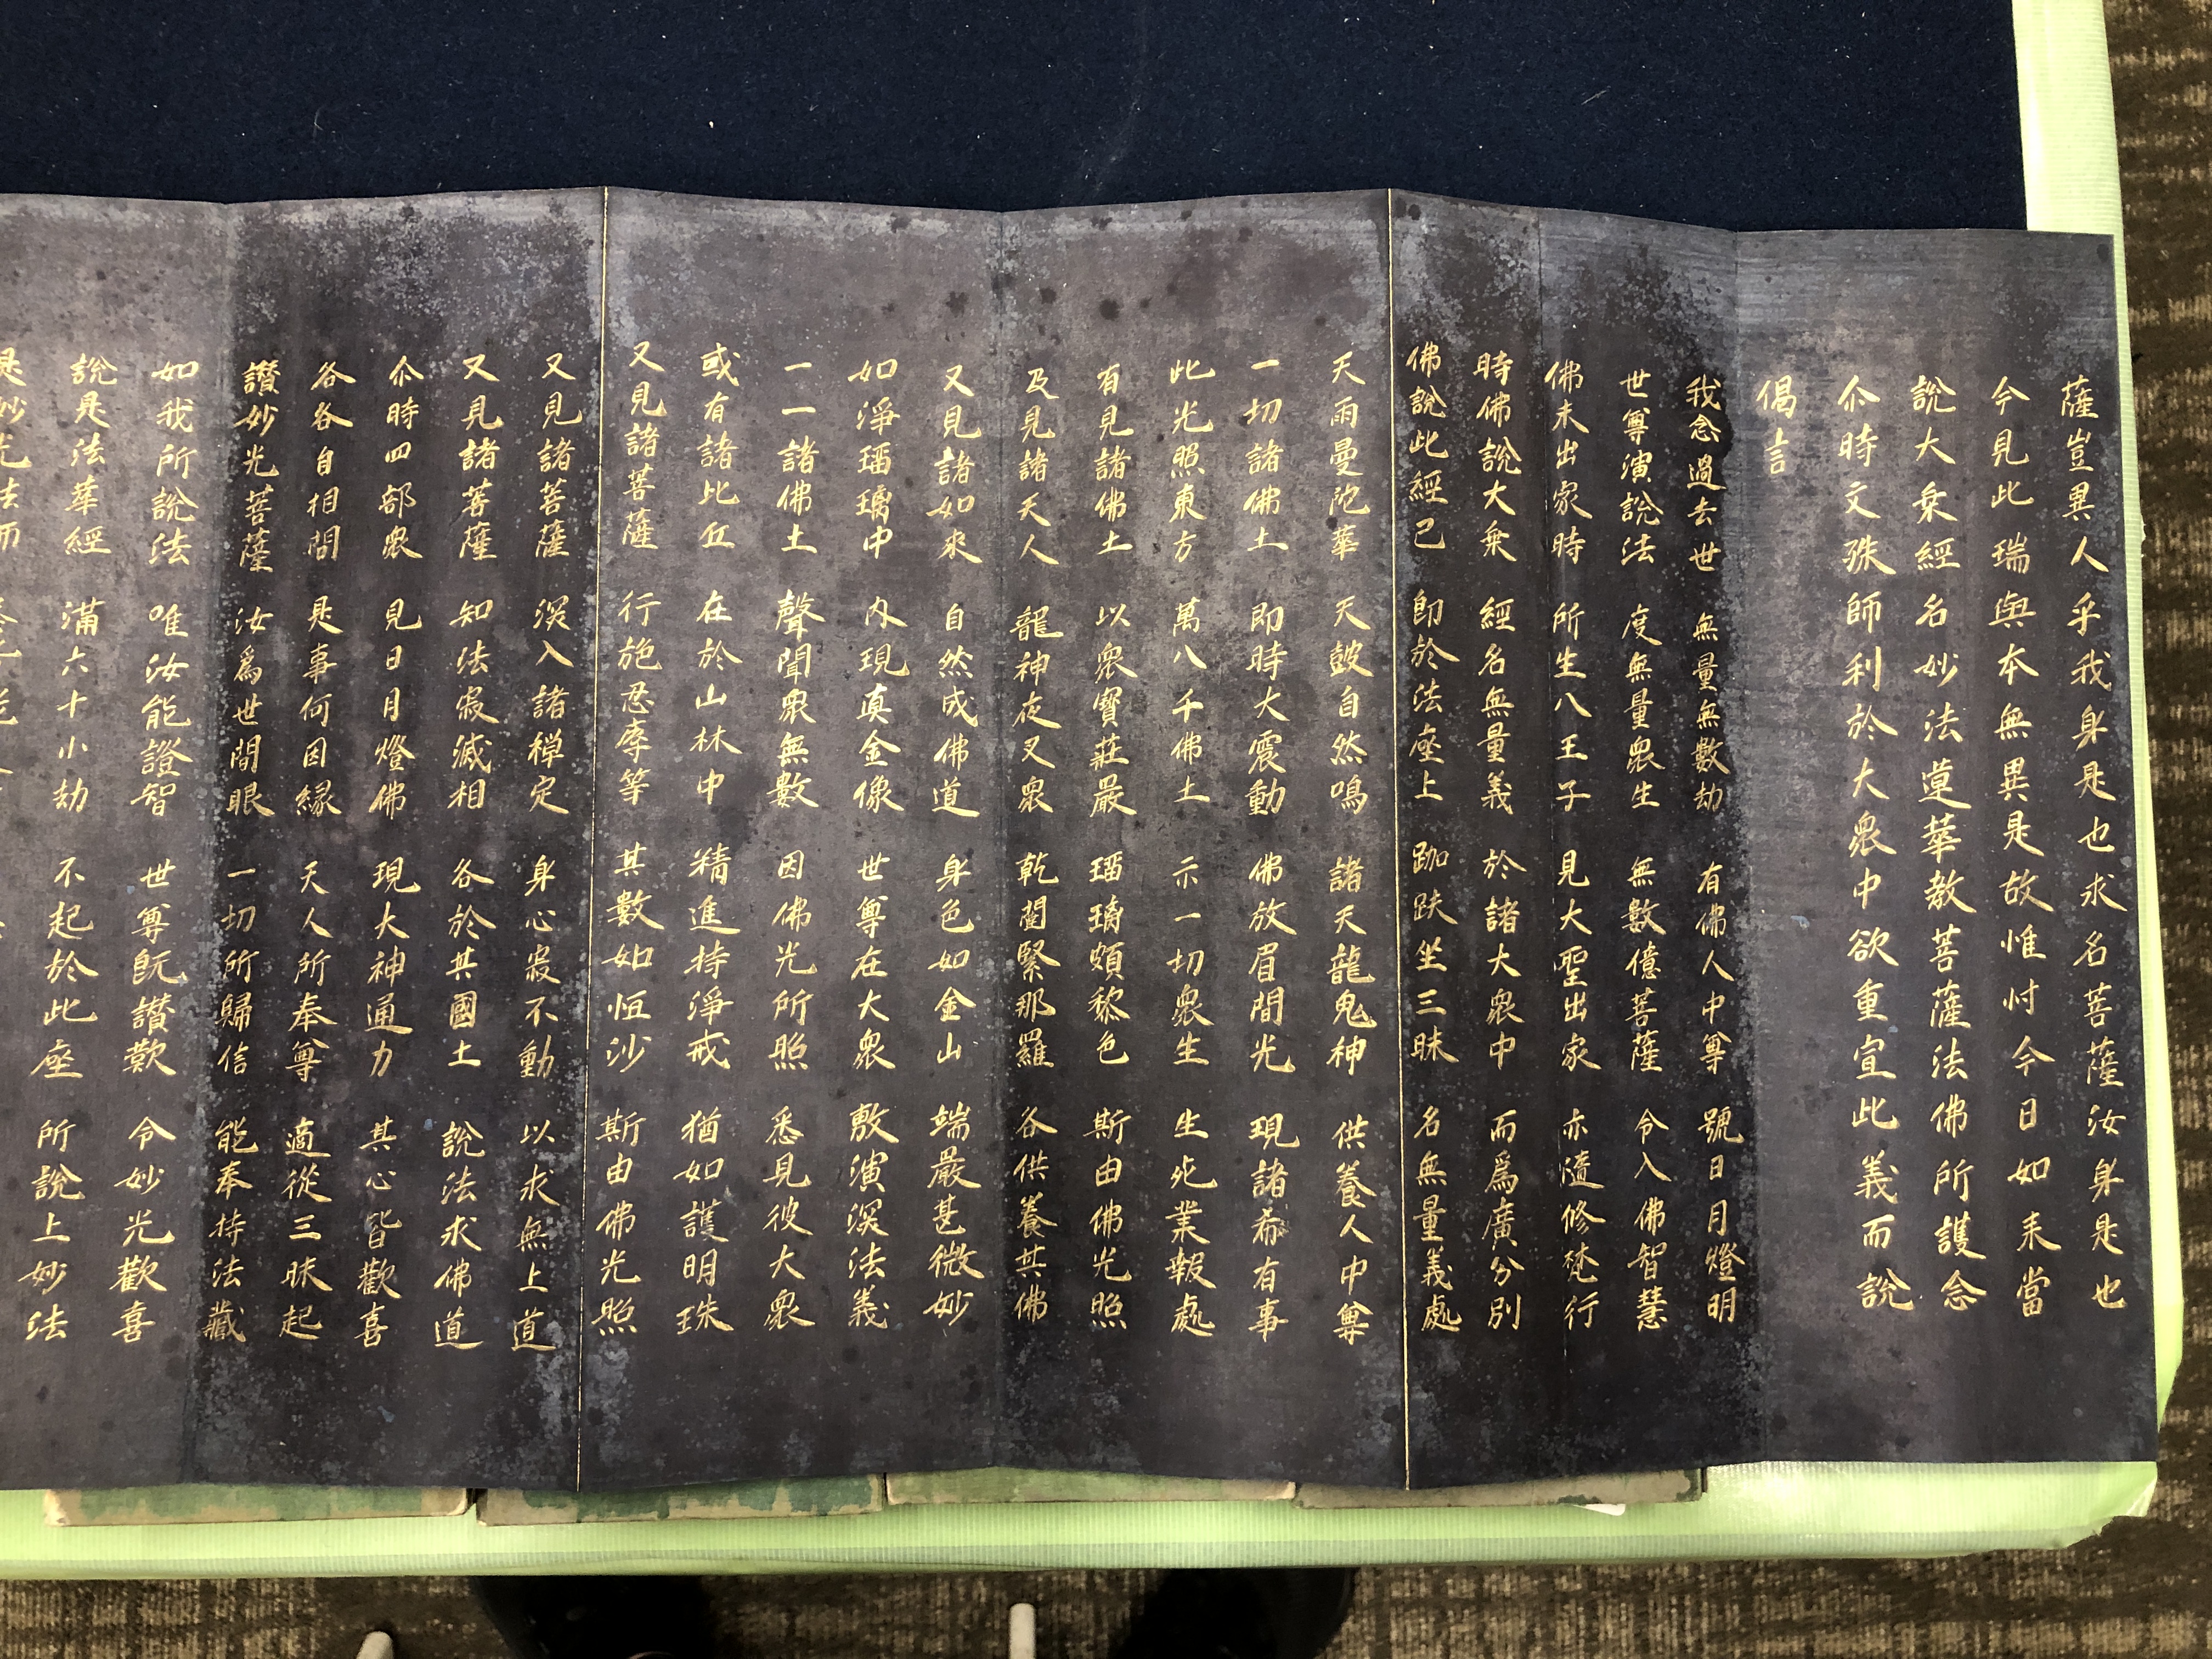 薩豈異人乎我身是也求名菩薩汝身是也
今見此瑞與本無異是故惟忖今日如来當
說大乗經名妙法蓮華教菩薩法佛所護念
尒時文殊師利於大衆中欲重宣此義而說
偈言
我念過去世 無量無數劫 有佛人中尊 號日月燈明
世尊演說法 度無量衆生 無數億菩薩 令入佛智慧
佛未出家時 所生八王子 見大聖出家 亦隨修梵行
時佛說大乗 經名無量義 於諸大衆中 而爲廣分別
佛說此經已 即於法座上 跏趺坐三昧 名無量義處
天雨曼陀華 天皷自然鳴 諸天龍鬼神 供養人中尊
一切諸佛土 即時大震動 佛放眉間光 現諸希有事
此光照東方 萬八千佛土 示一切衆生 生死業報處
有見諸佛土 以衆寶莊嚴 瑠璃頗黎色 斯由佛光照
及見諸天人 龍神夜叉衆 乾闥緊那羅 各供養其佛
又見諸如來 自然成佛道 身色如金山 端嚴甚微妙
如淨瑠璃中 內現真金像 世尊在大衆 敷演深法義
一一諸佛土 聲聞衆無數 因佛光所照 悉見彼大衆
或有諸比丘 在於山林中 精進持淨戒 猶如護明珠
又見諸菩薩 行施忍辱等 其數如恒沙 斯由佛光照
又見諸菩薩 深入諸禅定 身心寂不動 以求無上道
又見諸菩薩 知法寂滅相 各於其國土 說法求佛道
尒時四部衆 見日月燈佛 現大神通力 其心皆歡喜
各各自相問 是事何因緣 天人所奉尊 適從三昧起
讃妙光菩薩 汝爲世間眼 一切所歸信 能奉持法藏
如我所說法 唯汝能證智 世尊既讃歎 令妙光歡喜
說是法華經 滿六十小劫 不起於此座 所說上妙法
是妙光法而